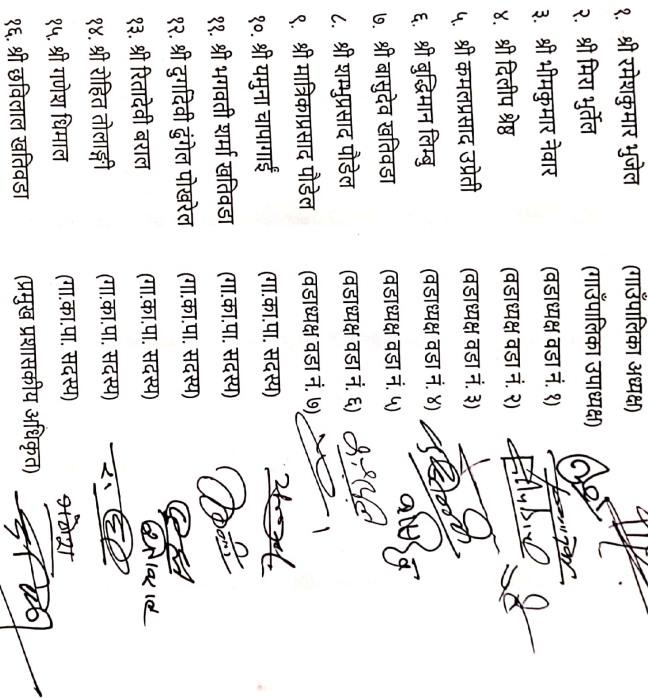 १. श्री रमेशकुमार भुजेल (गाउँपालिका अध्यक्ष)
२. श्री मिरा भुर्तेल (गाउँपालिका उपाध्यक्ष)
३. श्री भीमकुमार नेवार (वडाध्यक्ष वडा नं. १)
४. श्री दिलीप श्रेष्ठ (वडाध्यक्ष वडा नं. २)
५. श्री कमलप्रसाद उप्रेती (वडाध्यक्ष वडा नं. ३)
६. श्री बुद्धिमान लिम्बु (वडाध्यक्ष वडा नं. ४)
७. श्री बासुदेव खतिवडा (वडाध्यक्ष वडा नं. ५)
८. श्री शम्भुप्रसाद पौडेल (वडाध्यक्ष वडा नं. ६)
९. श्री मात्रिकाप्रसाद पौडेल (वडाध्यक्ष वडा नं. ७)
१०. श्री यमुना चापागाई (गा.का.पा. सदस्य)
११. श्री भगवती शर्मा खतिवडा (गा.का.पा. सदस्य)
१२. श्री दुर्गादेवी ढुंगेल पोखरेल (गा.का.पा. सदस्य)
१३. श्री रितादेवी बराल (गा.का.पा. सदस्य)
१४. श्री रोहित तोलाङ्गी (गा.का.पा. सदस्य)
१५. श्री गणेश धिमाल (गा.का.पा. सदस्य)
१६. श्री छविलाल खतिवडा (प्रमुख प्रशासकीय अधिकृत)